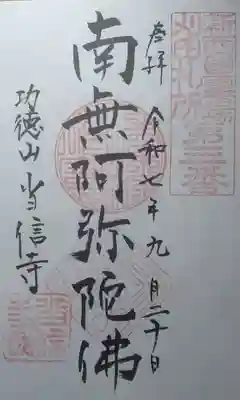 参拝 令和七年九月二十日
南無阿弥陀佛
功徳山 当信寺